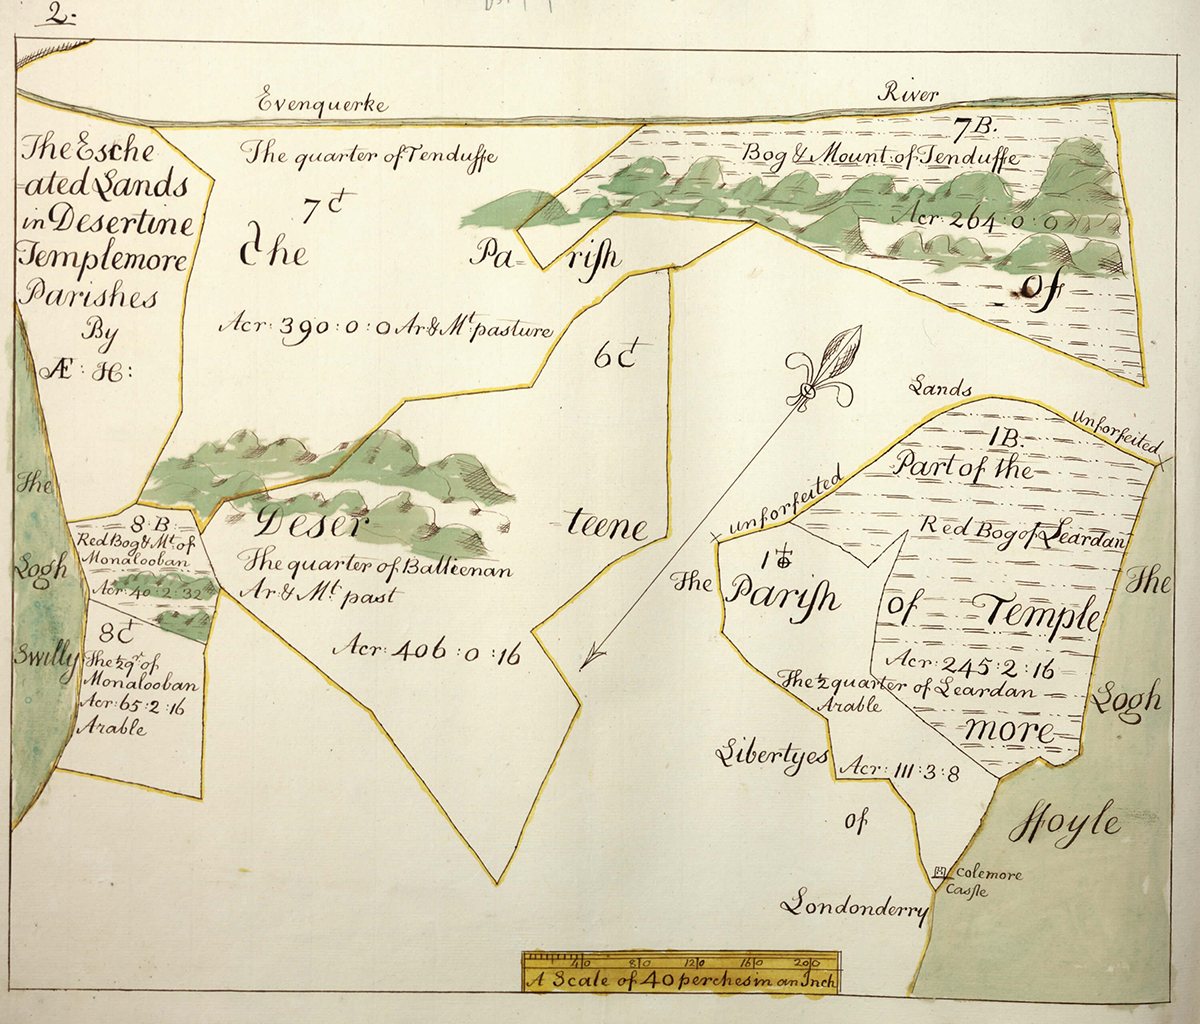 2.
Evenquerke River
The Esche
ated Lands
in Desertine
Templemore
Parishes
By
Æ : H:
The quarter of Tenduffe
7 C
7 B.
Bog & Mount. of Tenduffe
Acr: 264:0:0
The Parish of
Acr: 390:0:0 Ar & Mt. pasture
6 C
Deser teene
The quarter of Ballienan
Ar & Mt. past
Acr: 406:0:16
8 B.
Red Bog & Mt. of
Monalooban
Acr: 40:2:32
8 C
The ½ qr. of
Monalooban
Acr: 65:2:16
Arable
The
Logh
Swilly
Lands
unforfeited
unforfeited
1 B.
Part of the
Red Bog of Leardan
1
The Parish of Temple
more
Acr: 245:2:16
The ½ quarter of Leardan
Arable
Acr: 111:3:8
Libertyes
of
Londonderry
The
Logh
Ffoyle
Colemore
Castle
40 80 120 160 200
A Scale of 40 perches in an Inch